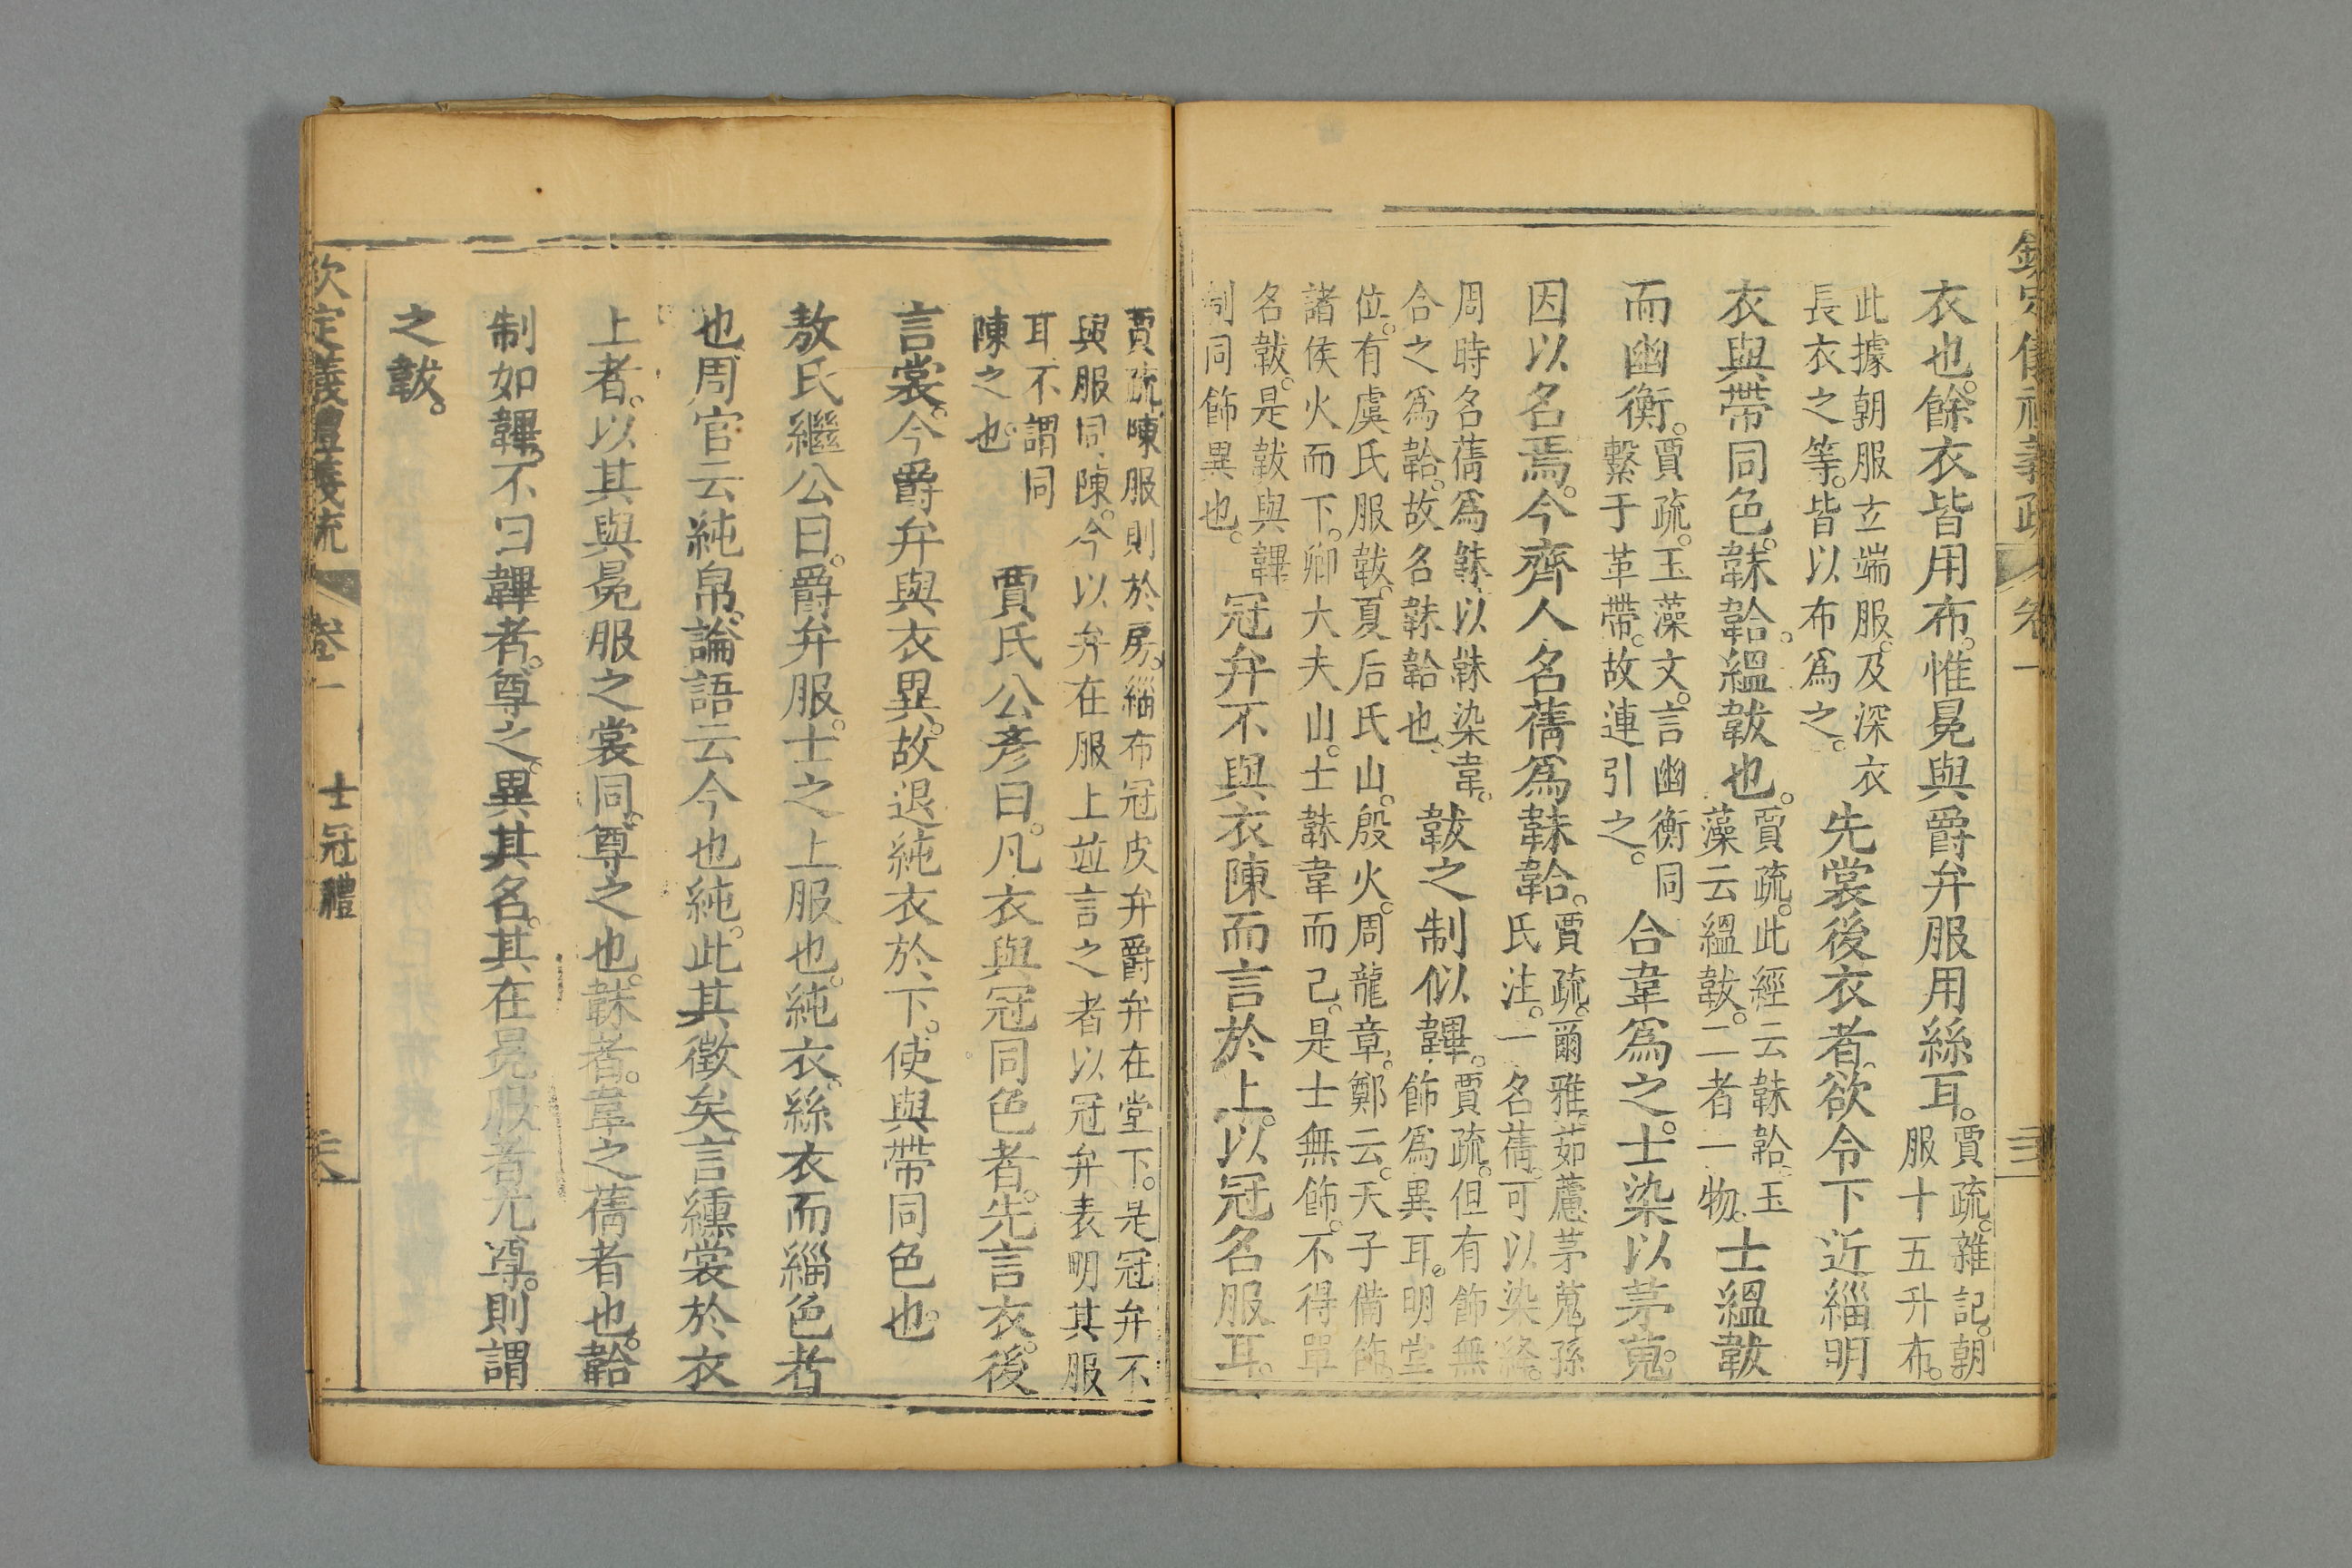 衣也。餘衣皆用布。惟冕與爵弁服用絲耳。賈疏。雜記。朝
服十五升布。
此據朝服玄端服。及深衣
長衣之等。皆以布爲之。先裳後衣者。欲令下近緇明
衣與帶同色。韎韐。縕韍也。賈疏。此經云韎韐。玉
藻云縕韍。二者一物。士縕韍
而幽衡。賈疏。玉藻文。言幽衡同
繫于革帶。故連引之。合韋爲之。士染以茅蒐。
因以名焉。今齊人名蒨爲韎韐。賈疏。爾雅。茹藘茅蒐孫
氏注。一名蒨。可以染絳。
周時名蒨爲韎以韎染韋。
合之爲韐。故名韎韐也。韍之制似韠。賈疏。但有飾無
飾爲異耳。明堂
位。有虞氏服韍。夏后氏山。殷火。周龍章。鄭云。天子備飾。
諸侯火而下。卿大夫山。士韎韋而已。是士無飾。不得單
名韍。是韍與韠
制同飾異也。冠弁不與衣陳而言於上。以冠名服耳。
賈疏。陳服則於房。緇布冠皮弁爵弁在堂下。是冠弁不
與服同陳。今以弁在服上並言之者以冠弁表明其服
耳不謂同
陳之也。賈氏公彥曰。凡衣與冠同色者。先言衣。後
言裳。今爵弁與衣異。故退純衣於下。使與帶同色也。
敖氏繼公曰。爵弁服。士之上服也。純衣。絲衣而緇色者
也。周官云純帛。論語云今也純。此其徵矣言纁裳於衣
上者。以其與冕服之裳同。尊之也。韎者。韋之蒨者也。韐
制如韠。不曰韠者。尊之。異其名。其在冕服者尤尊。則謂
之韍。
欽定儀禮義疏 卷一 士冠禮